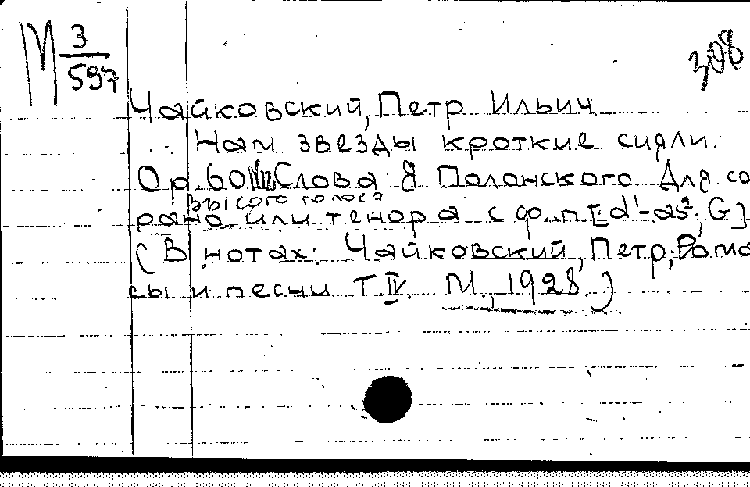 М 3/597
308
Чайковский, Петр Ильич
Нам звезды кроткие сияли.
Ор. 60 Слова Я Полонского Для со
высого голоса
рано или тенора с ф-п. [d'-as², G]
(В нотах: Чайковский, Петр, Рома
сы и песни Т. IV. М., 1928)